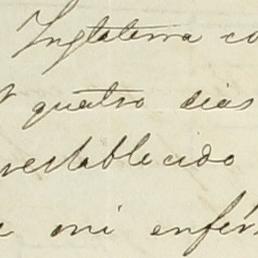 Inglaterra co
quatro dias
restablecido
mi enfer